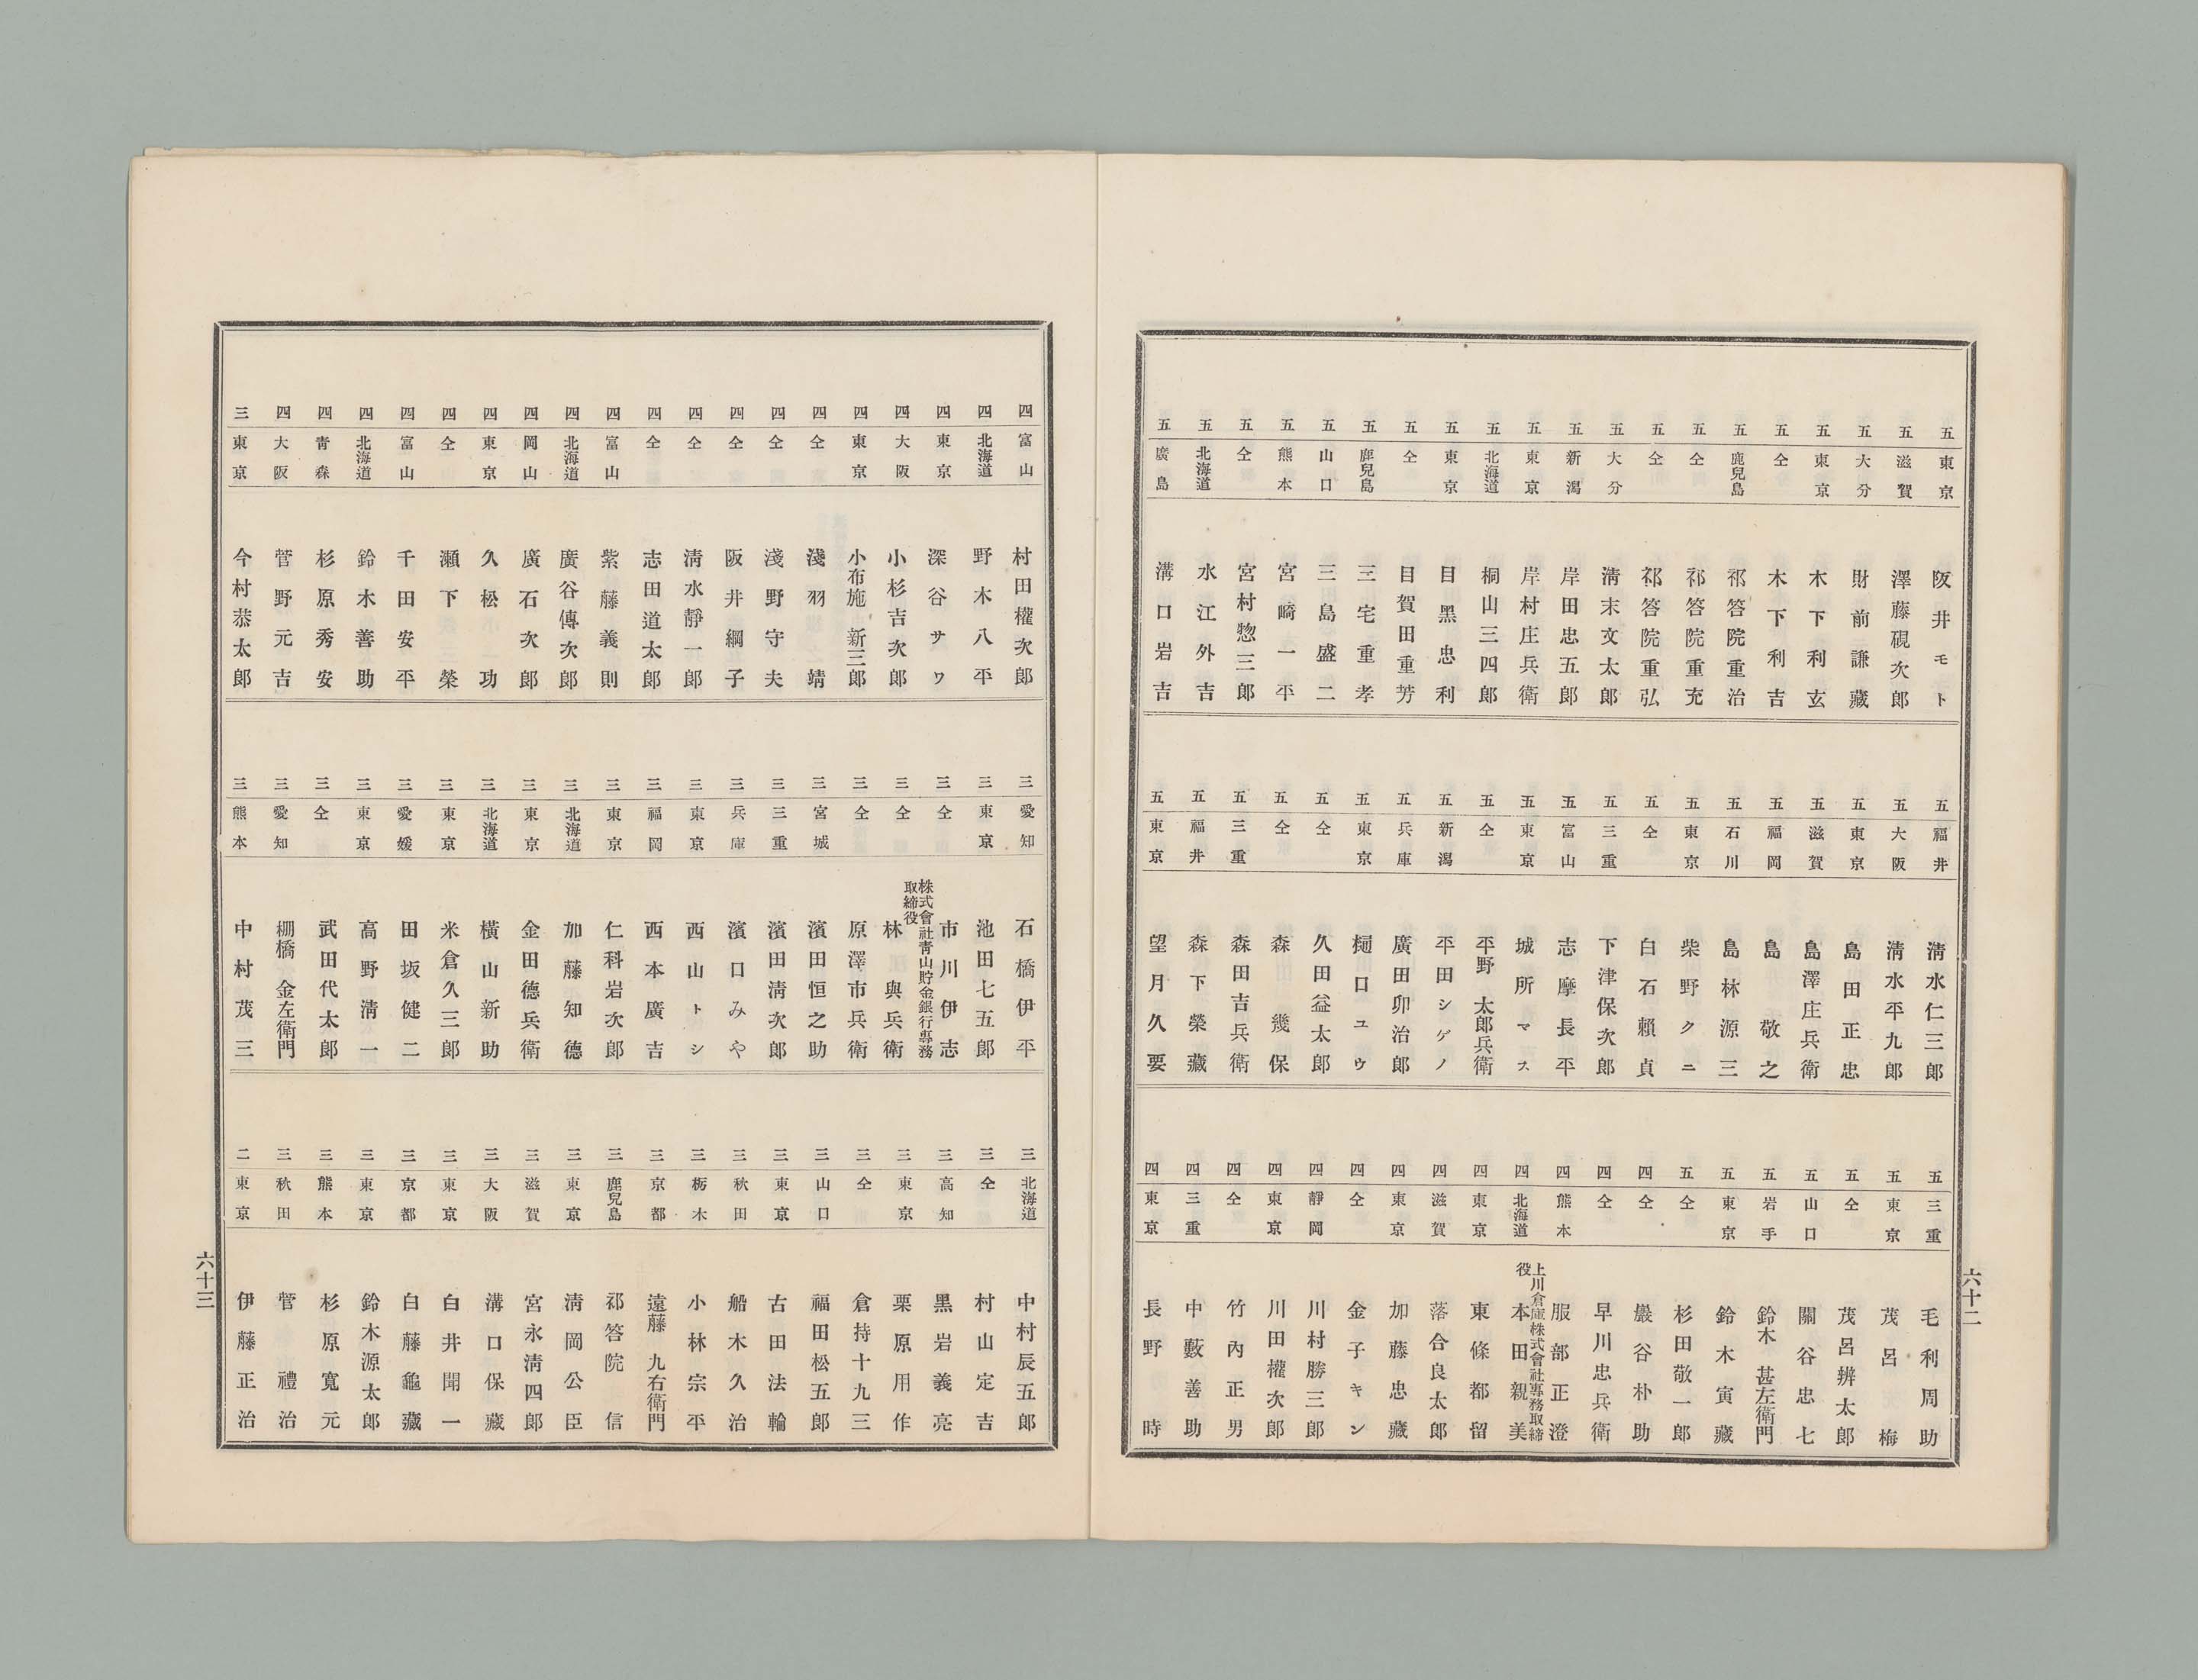 五 東京 阪井モト
五 滋賀 澤藤硯次郎
五 大分 財前謙藏
五 東京 木下利玄
五 仝 木下利吉
五 鹿兒島 祁答院重治
五 仝 祁答院重充
五 仝 祁答院重弘
五 大分 淸末文太郎
五 新潟 岸田忠五郎
五 東京 岸村庄兵衛
五 北海道 桐山三四郎
五 東京 目黑忠利
五 仝 目賀田重芳
五 鹿兒島 三宅重孝
五 山口 三島盛二
五 熊本 宮崎一平
五 仝 宮村惣三郎
五 北海道 水江外吉
五 廣島 溝口岩吉
五 福井 淸水仁三郎
五 大阪 淸水平九郎
五 東京 島田正忠
五 滋賀 島澤庄兵衛
五 福岡 島敬之
五 石川 島林源三
五 東京 柴野クニ
五 仝 白石賴貞
五 三重 下津保次郎
五 富山 志摩長平
五 東京 城所マス
五 仝 平野太郎兵衛
五 新潟 平田シゲノ
五 兵庫 廣田卯治郎
五 東京 樋口ユウ
五 仝 久田益太郎
五 仝 森幾保
五 三重 森田吉兵衛
五 福井 森下榮藏
五 東京 望月久要
五 三重 毛利周助
五 東京 茂呂梅
五 仝 茂呂辨太郎
五 山口 關谷忠七
五 岩手 鈴木甚左衛門
五 東京 鈴木寅藏
五 仝 杉田敬一郎
四 仝 巖谷朴助
四 仝 早川忠兵衛
四 熊本 服部正澄
四 北海道 上川倉庫株式會社專務取締役 本田親美
四 東京 東條都留
四 滋賀 落合良太郎
四 東京 加藤忠藏
四 仝 金子キン
四 靜岡 川村勝三郎
四 東京 川田權次郎
四 仝 竹內正男
四 三重 中藪善助
四 東京 長野時
六十二
四 富山 村田權次郎
四 北海道 野木八平
四 東京 深谷サワ
四 大阪 小杉吉次郎
四 東京 小布施新三郎
四 仝 淺羽靖
四 仝 淺野守夫
四 仝 阪井綱子
四 仝 淸水靜一郎
四 仝 志田道太郎
四 富山 紫藤義則
四 北海道 廣谷傳次郎
四 岡山 廣石次郎
四 東京 久松功
四 仝 瀨下榮
四 富山 千田安平
四 北海道 鈴木善助
四 靑森 杉原秀安
四 大阪 菅野元吉
三 東京 今村恭太郎
三 愛知 石橋伊平
三 東京 池田七五郎
三 仝 市川伊志
三 仝 株式會社靑山貯金銀行專務取締役 林與兵衛
三 仝 原澤市兵衛
三 宮城 濱田恒之助
三 三重 濱田淸次郎
三 兵庫 濱口みや
三 東京 西山トシ
三 福岡 西本廣吉
三 東京 仁科岩次郎
三 北海道 加藤知德
三 東京 金田德兵衛
三 北海道 橫山新助
三 東京 米倉久三郎
三 愛媛 田坂健二
三 東京 高野淸一
三 仝 武田代太郎
三 愛知 棚橋金左衛門
三 熊本 中村茂三
三 北海道 中村辰五郎
三 仝 村山定吉
三 高知 黑岩義亮
三 東京 栗原用作
三 仝 倉持十九三
三 山口 福田松五郎
三 東京 古田法輪
三 秋田 船木久治
三 栃木 小林宗平
三 京都 遠藤九右衛門
三 鹿兒島 祁答院信
三 東京 淸岡公臣
三 滋賀 宮永淸四郎
三 大阪 溝口保藏
三 東京 白井聞一
三 京都 白藤龜藏
三 東京 鈴木源太郎
三 熊本 杉原寬元
三 秋田 菅禮治
二 東京 伊藤正治
六十三